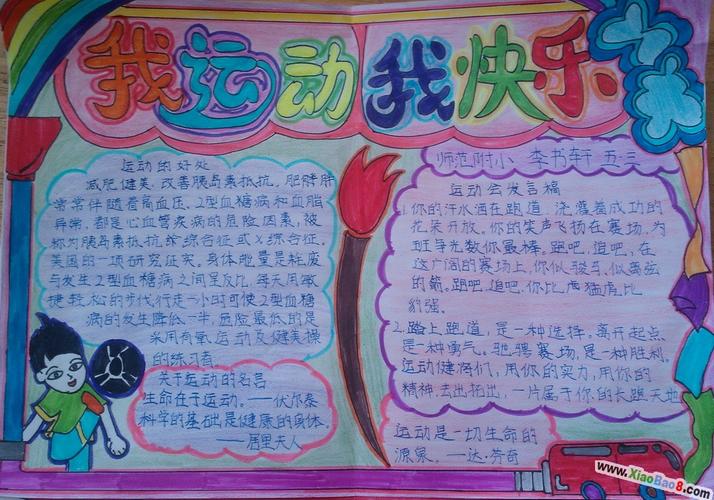 我运动我快乐
师范附小 李书轩 五.三
运动的好处
减肥健美.改善胰岛素抵抗。肥胖
常常伴随着高血压、2型血糖病和血脂
异常.都是心血管疾病的危险因素,被
称为胰岛素抵抗综合征或x综合征.
美国的一项研究证实.身体能量是耗废
与发生2型血糖病之间呈反比.每天用敏
捷轻松的步伐行走一小时可使2型血糖
病的发生降低一半,危险最低的是
采用有氧运动及健美操
的练习者.
关于运动的名言
生命在于运动.——伏尔泰
科学的基础是健康的身体.
——居里夫人
运动会发言稿
1.你的汗水洒在跑道,浇灌着成功的
花朵开放。你的笑声飞扬在赛场,为
班争光数你最棒。跑吧,追吧,在
这广阔的赛场上,你似骏马,似离弦
的箭。跑吧,追吧,你比虎猛虎比
豹强.
2.踏上跑道,是一种选择,离开起点
是一种勇气。驰骋赛场,是一种胜利.
运动健将们,用你的实力,用你的
精神,去出拓出,一片属于你的长跑天地
运动是一切生命的
源泉。—达·芬奇
www.XiaoBao8.com